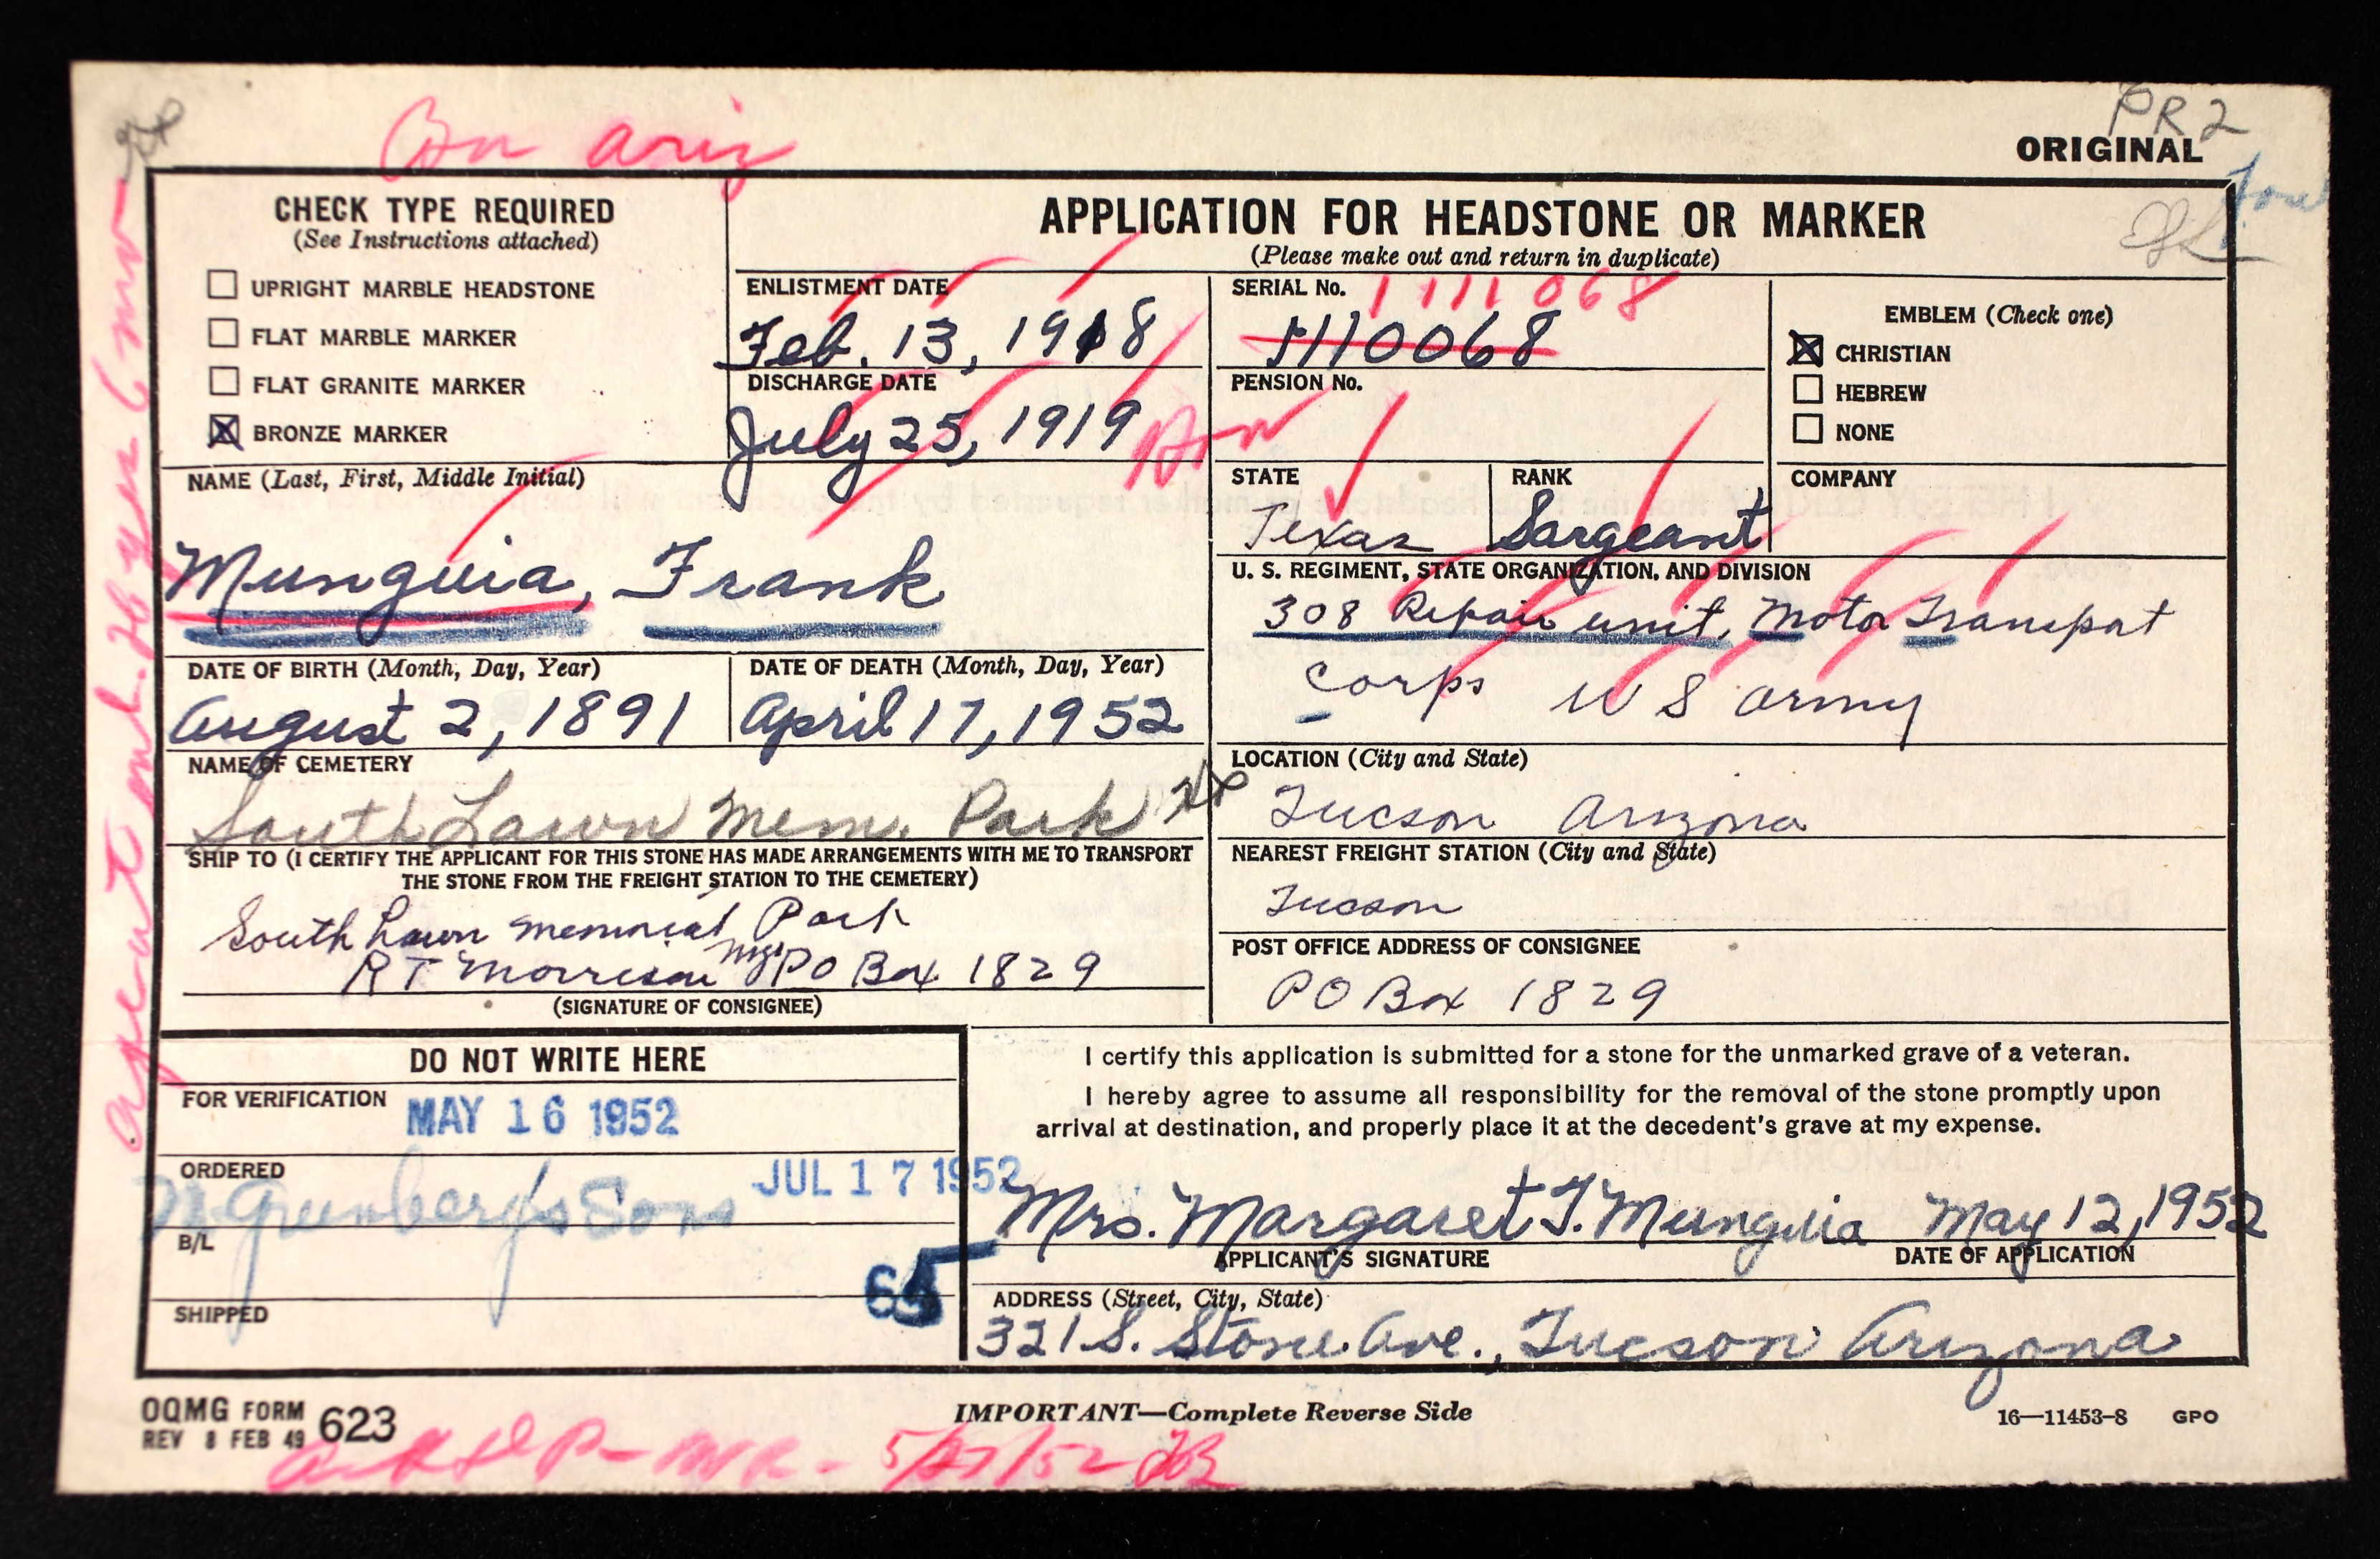 PR 2
ORIGINAL
CHECK TYPE REQUIRED
(See Instructions attached)
UPRIGHT MARBLE HEADSTONE
FLAT MARBLE MARKER
FLAT GRANITE MARKER
BRONZE MARKER
APPLICATION FOR HEADSTONE OR MARKER
(Please make out and return in duplicate)
ENLISTMENT DATE
Feb. 13, 1918
DISCHARGE DATE
July 25, 1919 Hon
SERIAL No. 1111068
1110068
PENSION No.
EMBLEM (Check one)
CHRISTIAN
HEBREW
NONE
NAME (Last, First, Middle Initial)
Munguia, Frank
STATE
Texas
RANK
Sargeant
COMPANY
U. S. REGIMENT, STATE ORGANIZATION, AND DIVISION
308 Repair unit, Motor Transport
Corps U S Army
DATE OF BIRTH (Month, Day, Year)
August 2, 1891
DATE OF DEATH (Month, Day, Year)
April 17, 1952
NAME OF CEMETERY
South Lawn Mem. Park
LOCATION (City and State)
Tucson Arizona
SHIP TO (I CERTIFY THE APPLICANT FOR THIS STONE HAS MADE ARRANGEMENTS WITH ME TO TRANSPORT
THE STONE FROM THE FREIGHT STATION TO THE CEMETERY)
South Lawn Memorial Park
R T Morrison Mgr PO Box 1829
(SIGNATURE OF CONSIGNEE)
NEAREST FREIGHT STATION (City and State)
Tucson
POST OFFICE ADDRESS OF CONSIGNEE
PO Box 1829
DO NOT WRITE HERE
FOR VERIFICATION
MAY 16 1952
ORDERED
JUL 17 1952
Greenberg's Sons
B/L
65
SHIPPED
I certify this application is submitted for a stone for the unmarked grave of a veteran.
I hereby agree to assume all responsibility for the removal of the stone promptly upon
arrival at destination, and properly place it at the decedent's grave at my expense.
Mrs. Margaret T. Munguia May 12, 1952
APPLICANT'S SIGNATURE
DATE OF APPLICATION
ADDRESS (Street, City, State)
321 S. Stone Ave., Tucson Arizona
OQMG FORM 623
REV 8 FEB 49
IMPORTANT—Complete Reverse Side
16—11453-8 GPO
5/27/52